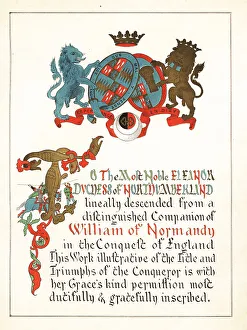 To The Most Noble ELEANOR
DUCHESS of NORTHUMBERLAND
lineally descended from a
distinguished Companion of
William of Normandy
in the Conquest of England
This Work illustrative of the Life and
Triumphs of the Conqueror is with
her Grace's kind permission most
dutifully & gratefully inscribed.